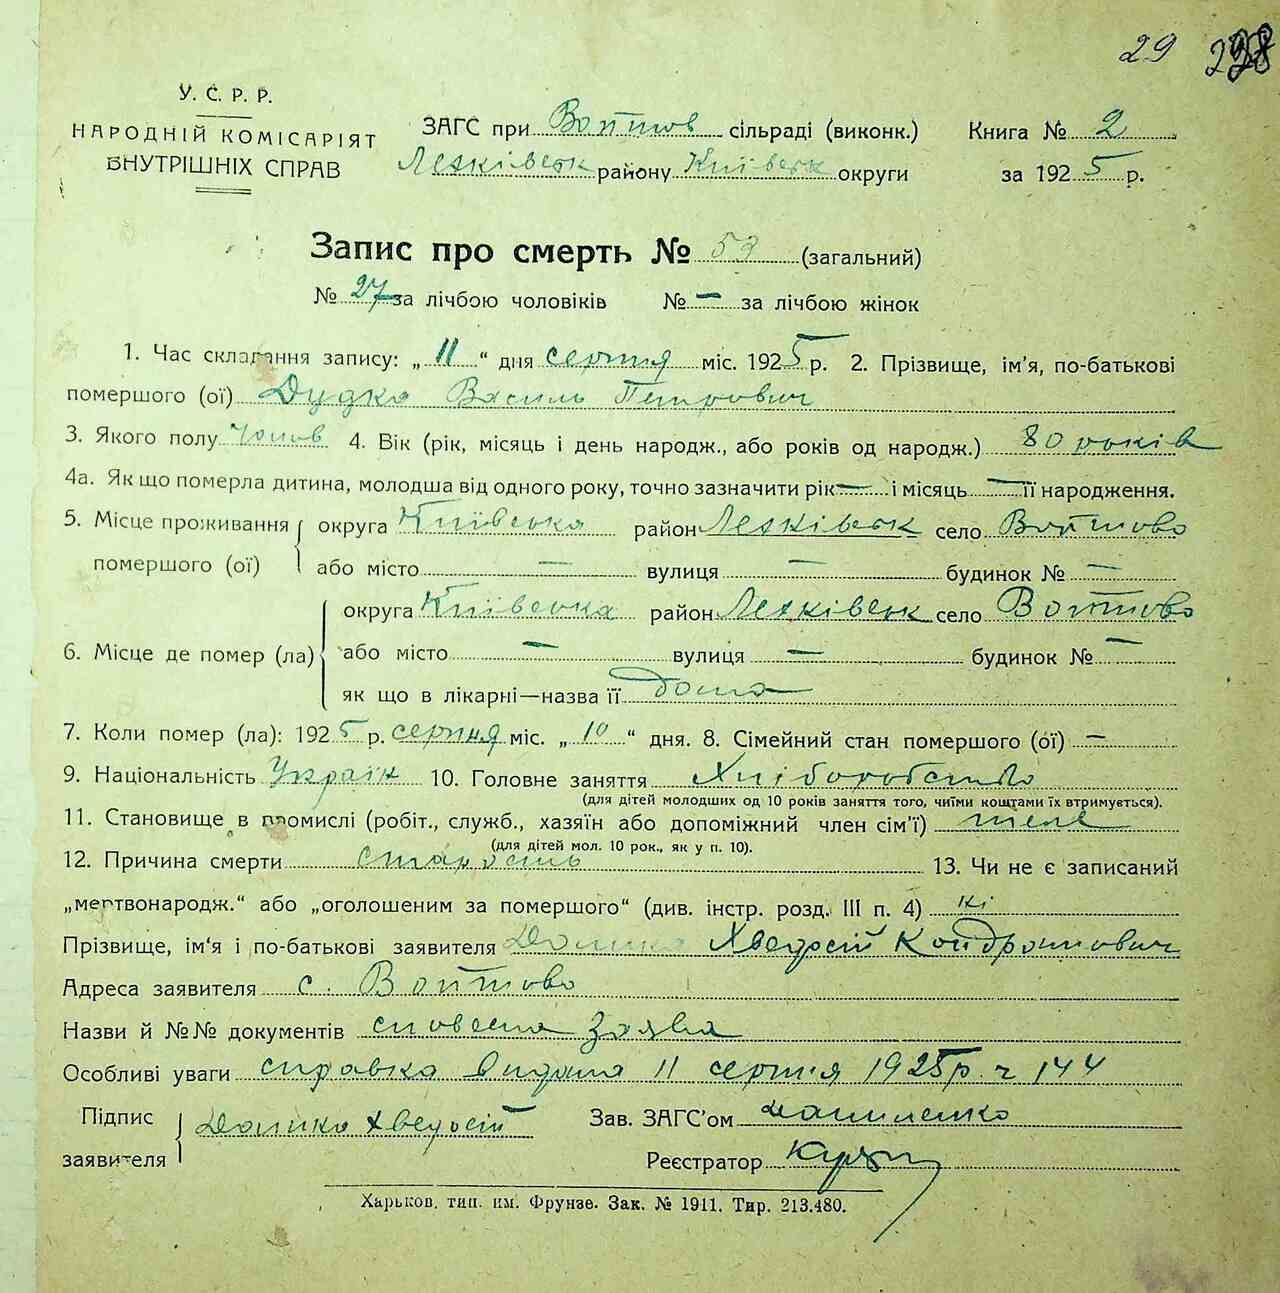 29
У. С. Р. Р.
НАРОДНІЙ КОМІСАРІЯТ
ВНУТРІШНІХ СПРАВ
ЗАГС при Войтов сільраді (виконк.)
Книга № 2
району Київськ округи
за 1925 р.
Запис про смерть № (загальний)
№ 27 за лічбою чоловіків № — за лічбою жінок
1. Час складання запису: „11“ дня серпня міс. 1925 р. 2. Прізвище, ім'я, по-батькові
помершого (ої) Дудка Василь Петрович
3. Якого полу Чолов 4. Вік (рік, місяць і день народж., або років од народж.) 80 років
4а. Як що померла дитина, молодша від одного року, точно зазначити рік — і місяць — її народження.
5. Місце проживання помершого (ої) округа Київська район село Войтово
або місто — вулиця — будинок № —
6. Місце де помер (ла) округа Київська район село Войтово
або місто — вулиця — будинок № —
як що в лікарні—назва її дома
7. Коли помер (ла): 1925 р. серпня міс. „10“ дня. 8. Сімейний стан помершого (ої) —
9. Національність Україн 10. Головне заняття Хліборобство
(для дітей молодших од 10 років заняття того, чиїми коштами їх втримується).
11. Становище в промислі (робіт., служб., хазяїн або допоміжний член сім'ї) член
(для дітей мол. 10 рок., як у п. 10).
12. Причина смерти старость 13. Чи не є записаний
„мертвонародж.“ або „оголошеним за помершого“ (див. інстр. розд. III п. 4) ні
Прізвище, ім'я і по-батькові заявителя Хведосій Кондратович
Адреса заявителя с. Войтово
Назви й №№ документів словесна Заява
Особливі уваги справка видана 11 серпня 1925 р. ч 144
Підпис заявителя Хведосій
Зав. ЗАГС'ом Даниленко
Реєстратор
Харьков. тип. им. Фрунзе. Зак. № 1911. Тир. 213.480.